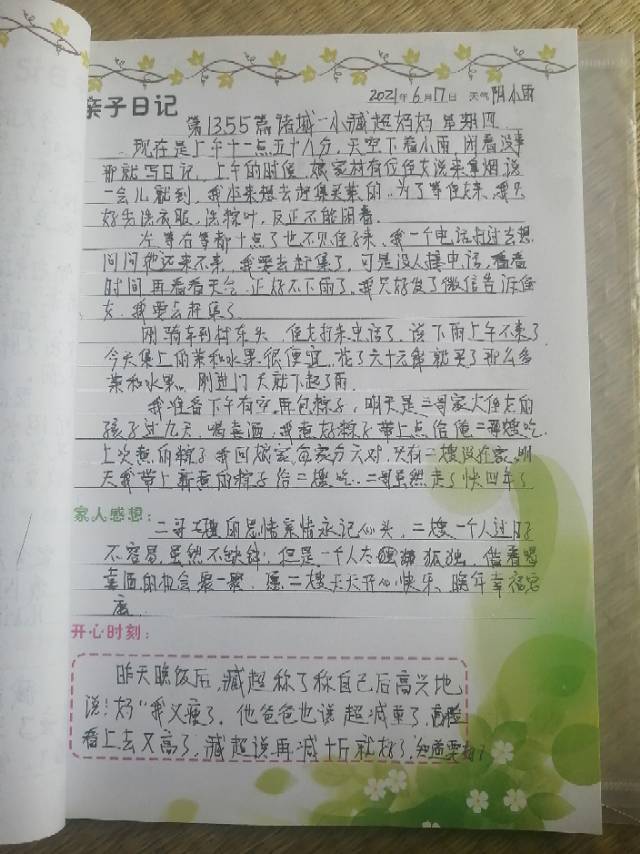 亲子日记
2021年6月17日 天气 阴小雨
第1355篇诸城一小臧超妈妈 星期四
现在是上午十一点五十八分,天空下着小雨,闲着没事
那就写日记,上午的时候,娘家村有位侄女说来拿烟,说
一会儿就到,我本来想去赶集买菜的,为了等侄女来,我只
好先洗衣服,洗粽叶,反正不能闲着.
左等右等都十点了也不见侄子来,我一个电话打过去想
问问她还来不来,我要去赶集了,可是没人接电话,看看
时间再看看天气,正好不下雨了,我只好发了微信告诉侄
女,我要去赶集了.
刚骑车到村东头,侄女打来电话了,说下雨上午不来了
今天集上的菜和水果很便宜,花了六十元钱就买了那么多
菜和水果。刚进门天就下起了雨.
我准备下午有空再包粽子,明天是三哥家大侄女的
孩子过九天,喝喜酒,我煮好粽子带上点给俺二哥嫂吃,
上次煮的粽子我回娘家每家分六对,只有二嫂没在家,明
天我带上新煮的粽子给二嫂吃,二哥虽然走了快四年了
家人感想:
二哥二嫂的恩情亲情永记心头,二嫂一个人过日子
不容易,虽然不缺钱,但是一个人太孤独,借着喝
喜酒的机会聚一聚,愿二嫂天天开心快乐、晚年幸福安
康.
开心时刻:
昨天晚饭后,臧超称了称自己后高兴地
说!妈"我又瘦了,他爸爸也说超减重了,
看上去又高了,臧超说再减十斤就好了,